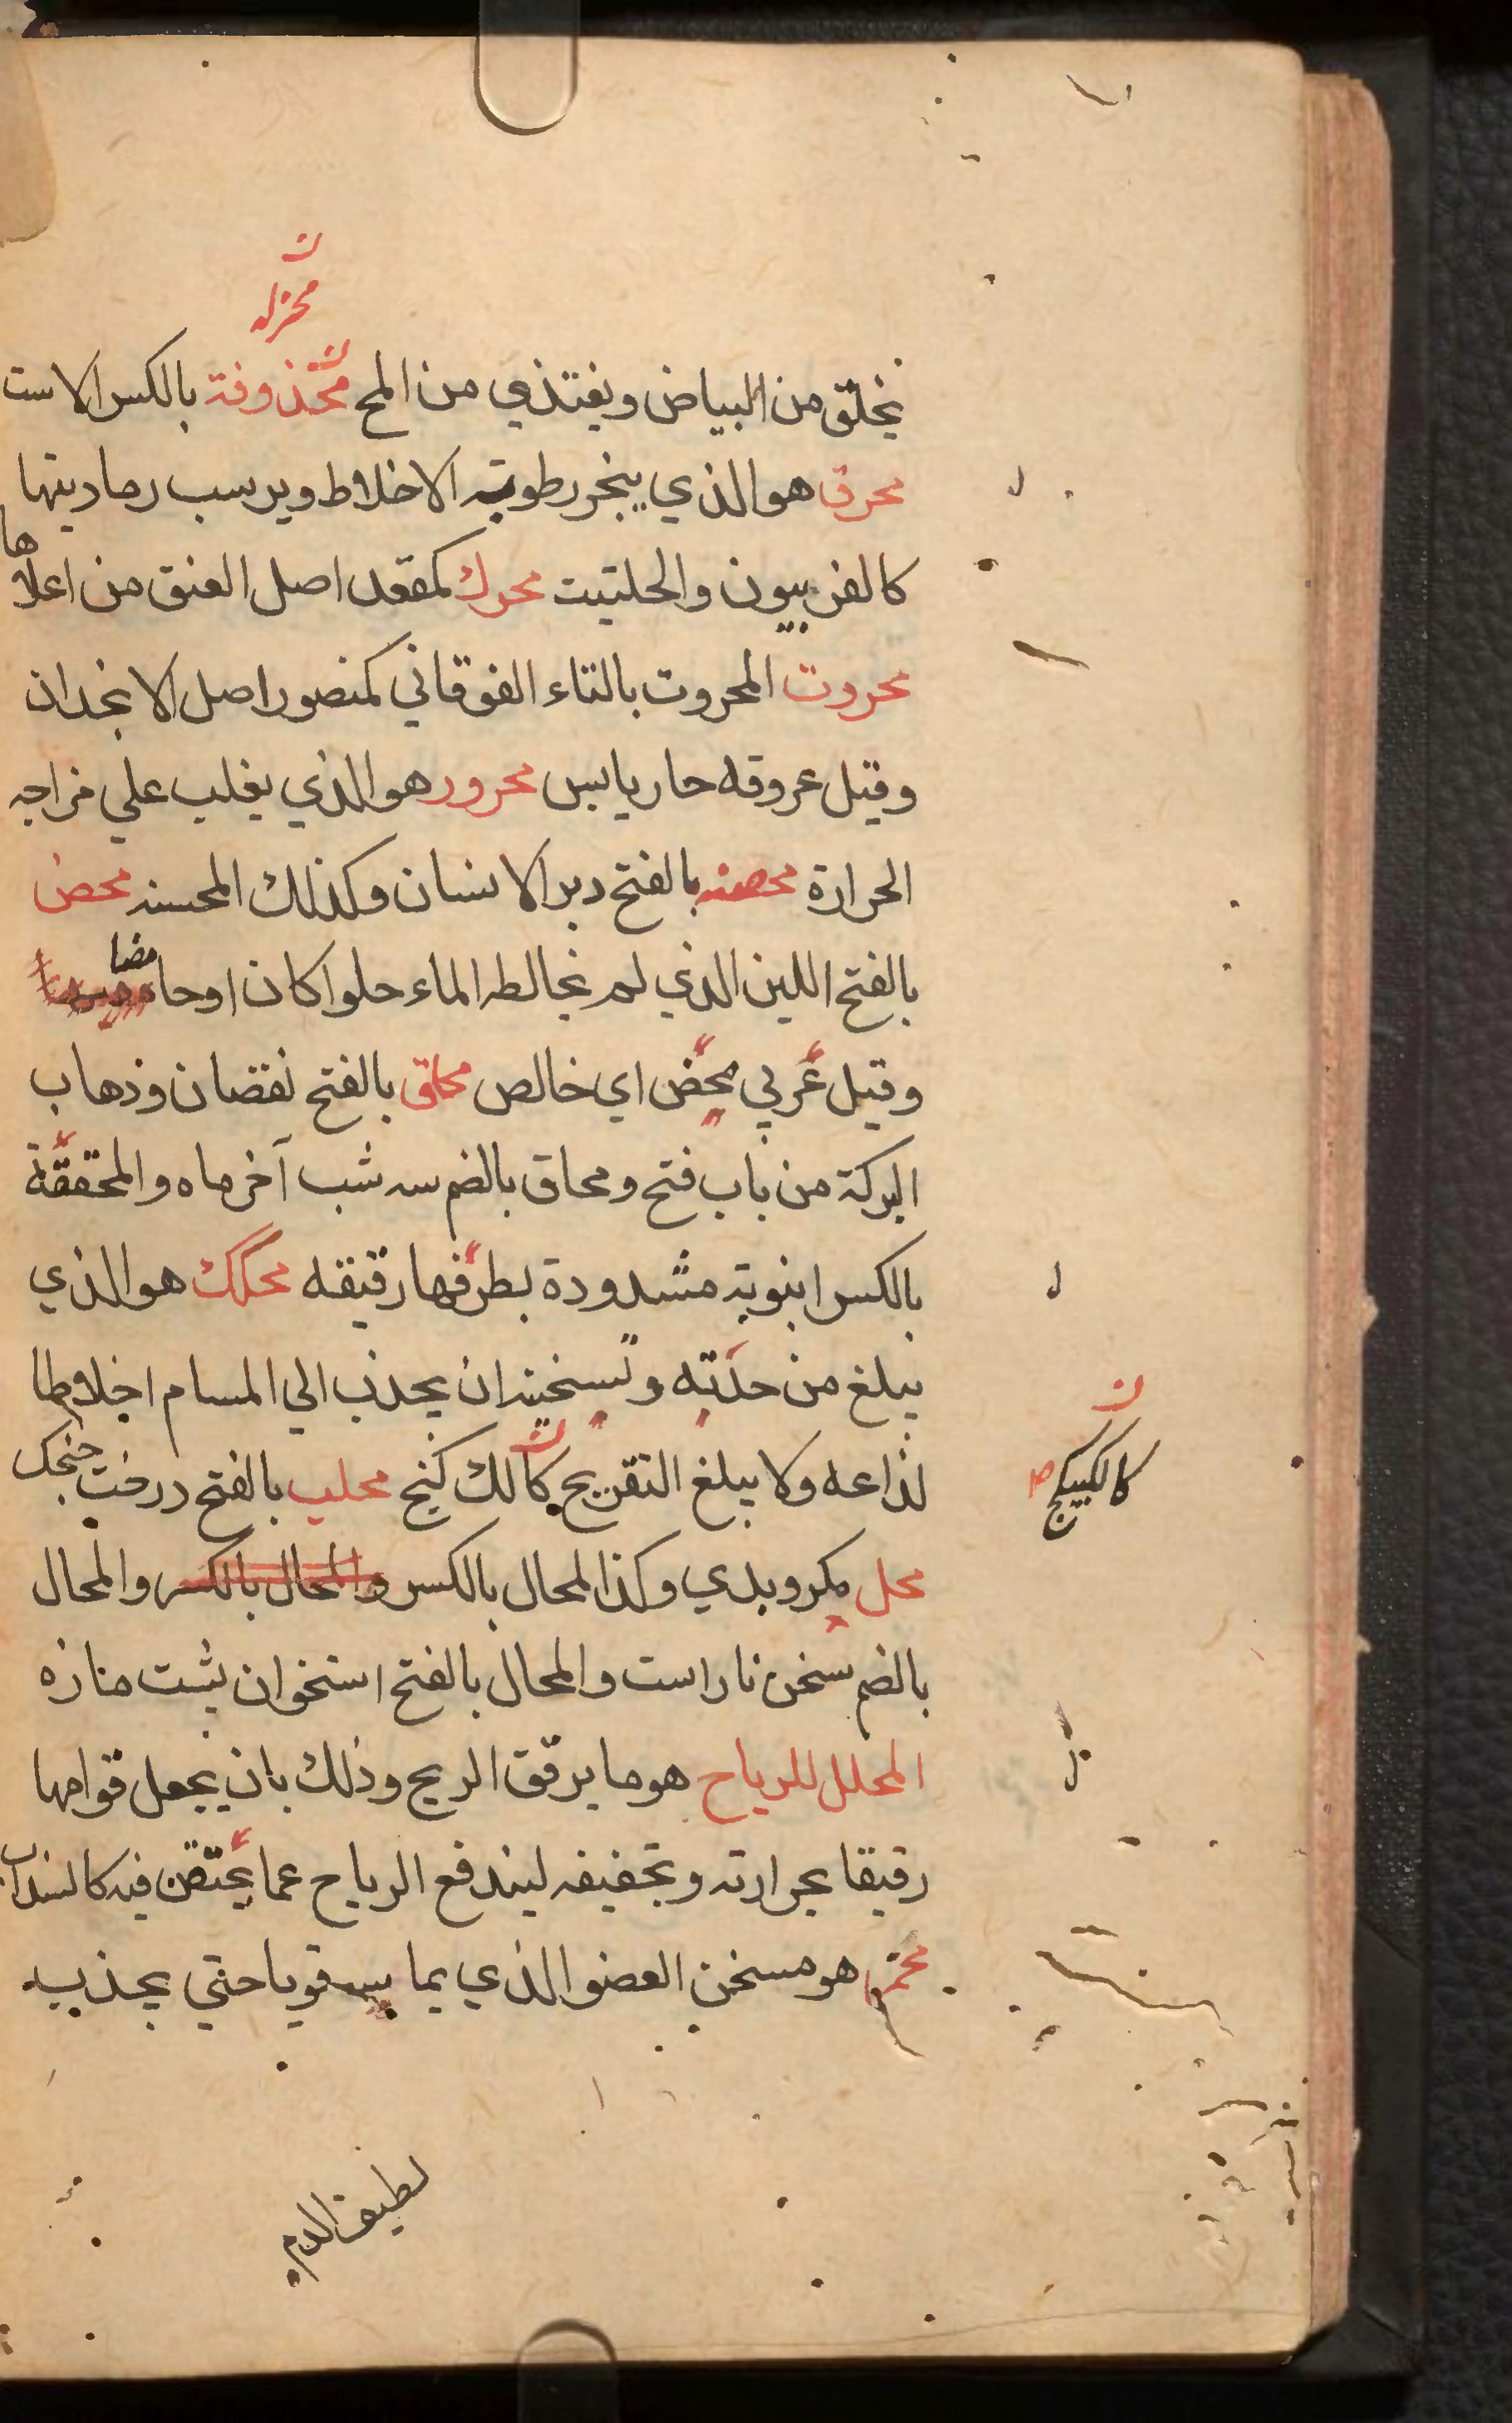 ن
محزله
يخلق من البياض ويغتذي من المح محذوفة بالكسر الاست
محرق هو الذي يبخر رطوبة الاخلاط ويرسب رماديتها
كالفربيون والحلتيت محرك كمقعد اصل العنق من اعلاها
محروت المحروت بالتاء الفوقاني كمنصور اصل الانجدان
وقيل عروقه حار يابس محرور هو الذي يغلب علي مزاجه
الحرارة محصنه بالفتح دبر الانسان وكذلك المحسنه محض
بالفتح اللبن الذي لم يخالطه الماء حلوا كان او حامضا
وقيل عربي محض اي خالص محاق بالفتح نقصان وذهاب
البركة من باب فتح ومحاق بالضم سه شب آخر ماه والمحققة
بالكسر انبوبة مشدودة بطرفها رقيقه محكك هو الذي
يبلغ من حدته وتسخينه ان يجذب الي المسام اخلاطا
لذاعه ولا يبلغ التقريح كالك كنج محلب بالفتح درخت جنجك
كالكبيكج
محل مكر وبدي وكذا المحال بالكسر والمحال بالكسر والمحال
بالضم سخن ناراست والمحال بالفتح استخوان پشت مازه
المحلل للرياح هو ما يرقق الريح وذلك بان يجعل قوامها
رقيقا بحرارته وتجفيفه ليندفع الرياح عما يحتقن فيه كالسداب
محمر هو مسخن العضو الذي يماسه قويا حتي يجذب
لطيف الدم